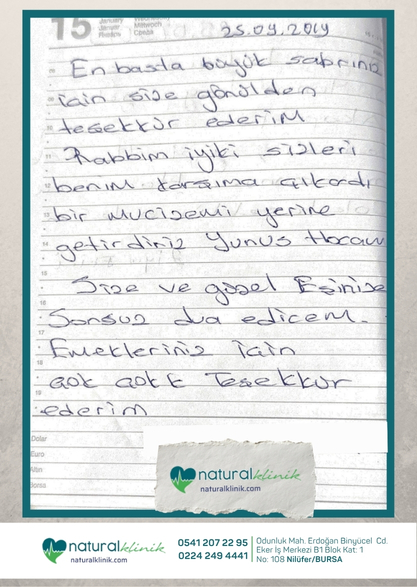 15
January
Januar
Mittwoch
Среда
25.09.2019
En basta büyük sabrınız
için size gönülden
teşekkür ederim
Rabbim iyiki sizleri
benim karşıma çıkardı
bir mucizemi yerine
getirdiniz Yunus Hocam
Size ve güzel Eşinize
Sonsuz dua edicem.
Emekleriniz için
çok çokk Teşekkür
ederim
Dolar
Euro
Altın
Borsa
naturalklinik
naturalklinik.com
naturalklinik
www.naturalklinik.com
0541 207 22 95
0224 249 4441
Odunluk Mah. Erdoğan Binyücel Cd.
Eker İş Merkezi B1 Blok Kat: 1
No: 108 Nilüfer/BURSA